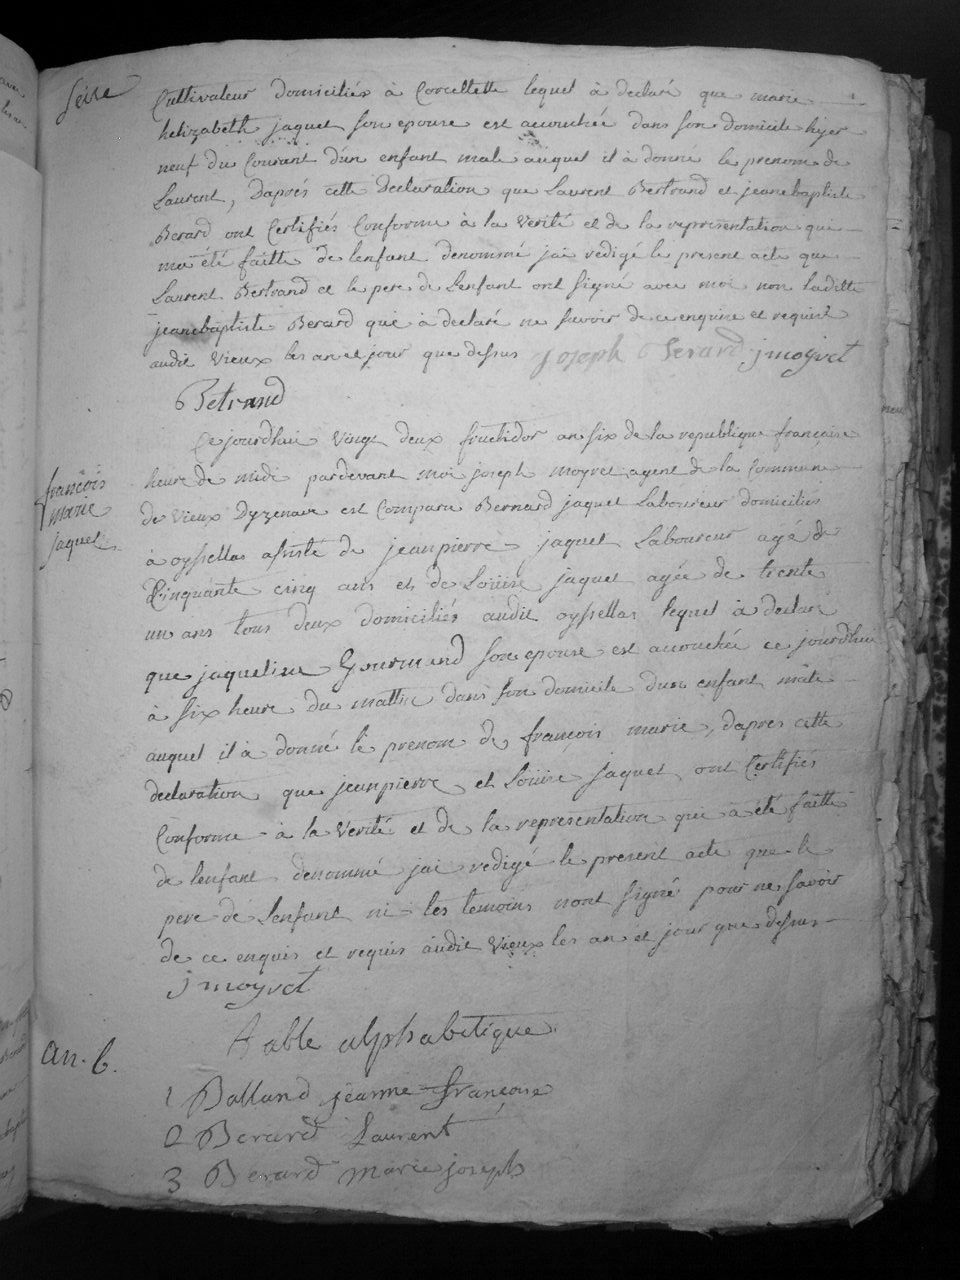 seize
Cultivateur domiciliés à Corcellette lequel à declaré que marie
helizabeth jaquet son epouse est accouchée dans son domicile hyer
neuf du Courant d'un enfant male auquel il à donné le prenom de
Laurent, Daprés cette Declaration que Laurent Bertrand et jeanbaptiste
Berard ont Certifiés Conforme à la Verité et de la representation qui
ma été faitte de lenfant denommé jai rédigé le present acte que
Laurent Bertrand et le pere de Lenfant ont signé avec moi non laditte
jeanebaptiste Berard qui à declaré ne savoir de ce enquise et requise
audit Vieux les an et jour que dessus joseph Berard j moyret
Betrand
françois
marie
jaquet
Ce jourdhui Vingt deux fructidor an six de la republique française
heure de midi pardevant moi joseph moyret agent de la Commune
de Vieux Dyzenave est Comparu Bernard jaquet Laboureur domiciliés
à oyssellas assisté de jeanpierre jaquet Laboureur agé de
Cinquante cinq ans et de Loüise jaquet agée de trente
un ans tous deux domiciliés audit oyssellas lequel à declaré
que jaqueline Gourmand son epouse est accouchée ce jourdhui
à six heure du mattin dans son domicile d'un enfant mâle
auquel il à donné le prenom de françois marie, dapres cette
declaration que jeanpierre et Loüise jaquet ont Certifiés
Conforme à la Verité et de la representation qui à été faitte
de lenfant denommé jai redigé le present acte que le
pere de Lenfant ni les temoins nont signé pour ne savoir
de ce enquis et requis audit Vieux les an et jour que dessus
j moyret
Table alphabetique
an. 6.
1 Balland jeanne françoise
2 Berard Laurent
3 Berard marie joseph